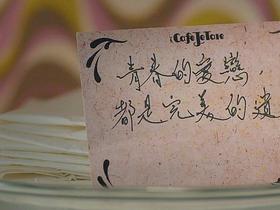 CafeJeTore
青春的愛戀，
都是完美的